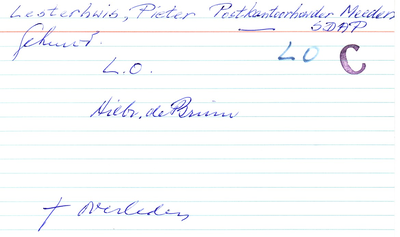 Lesterhuis, Pieter Postkantoorhouder Meeden
SDAP
Gehuwd.
L.O.
LO C
Hilbr. de Bruin
† overleden